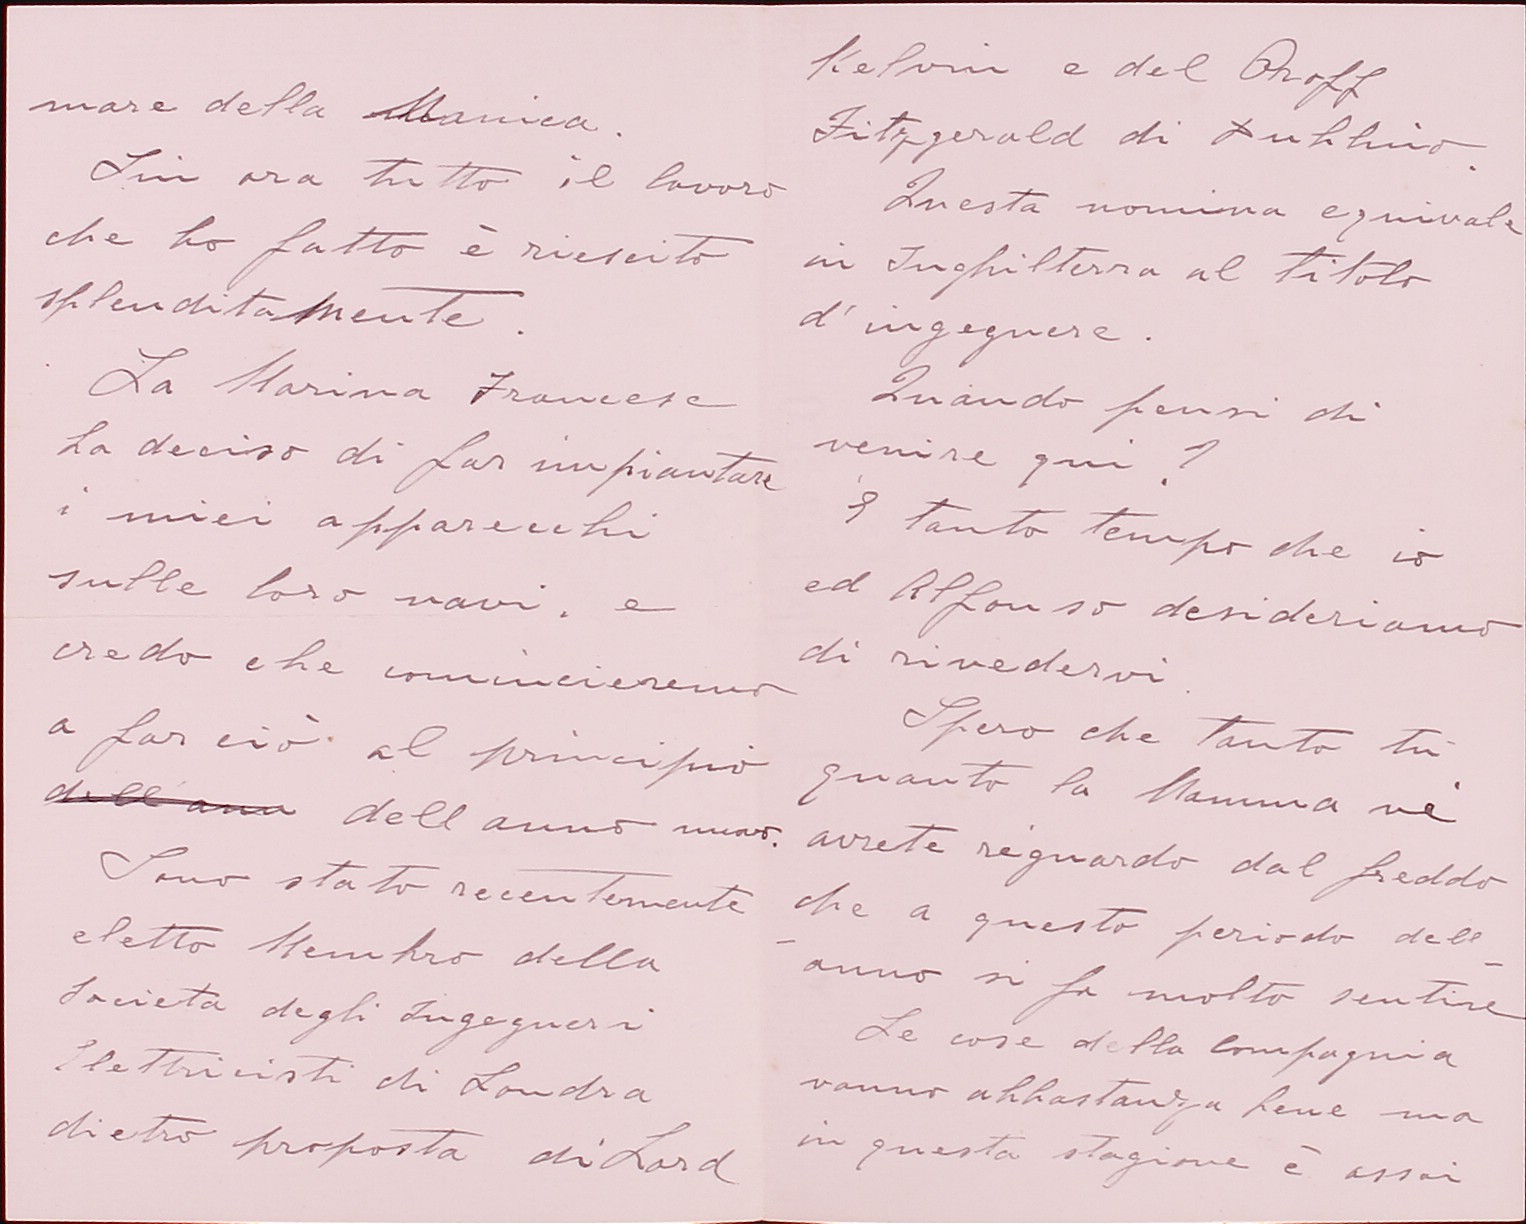 mare della Manica.
Sin ora tutto il lavoro
che ho fatto è riescito
splenditamente.
La Marina Francese
ha deciso di far impiantare
i miei apparecchi
sulle loro navi, e
credo che comincieremo
a far ciò al principio
dell ann dell anno nuovo.
Sono stato recentemente
eletto Membro della
Società degli Ingegneri
Elettricisti di Londra
dietro proposta di Lord
Kelvin e del Proff
Fitzgerald di Dublino.
Questa nomina equivale
in Inghilterra al titolo
d'ingegnere.
Quando pensi di
venire qui?
È tanto tempo che io
ed Alfonso desideriamo
di rivedervi.
Spero che tanto tu
quanto la Mamma vi
avrete riguardo dal freddo
che a questo periodo dell-
-anno si fa molto sentire
Le cose della Compagnia
vanno abbastanza bene ma
in questa stagione è assai